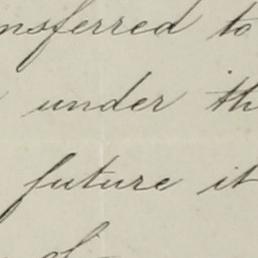 nsferred to
under th
future it
of